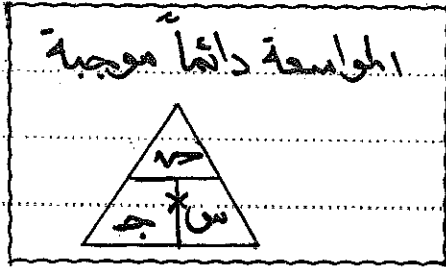 المواسعة دائماً موجبة
سه
جـ × س